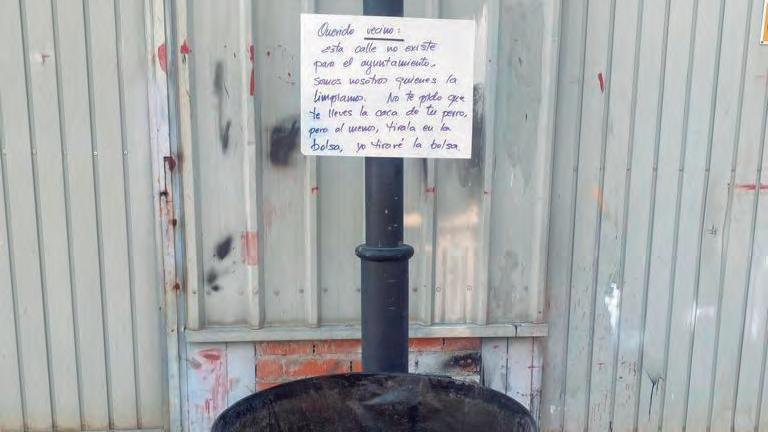 Querido vecino:
esta calle no existe
para el ayuntamiento.
Somos nosotros quienes la
limpiamos. No te pido que
te lleves la caca de tu perro,
pero al menos, tirala en la
bolsa, yo tiraré la bolsa.